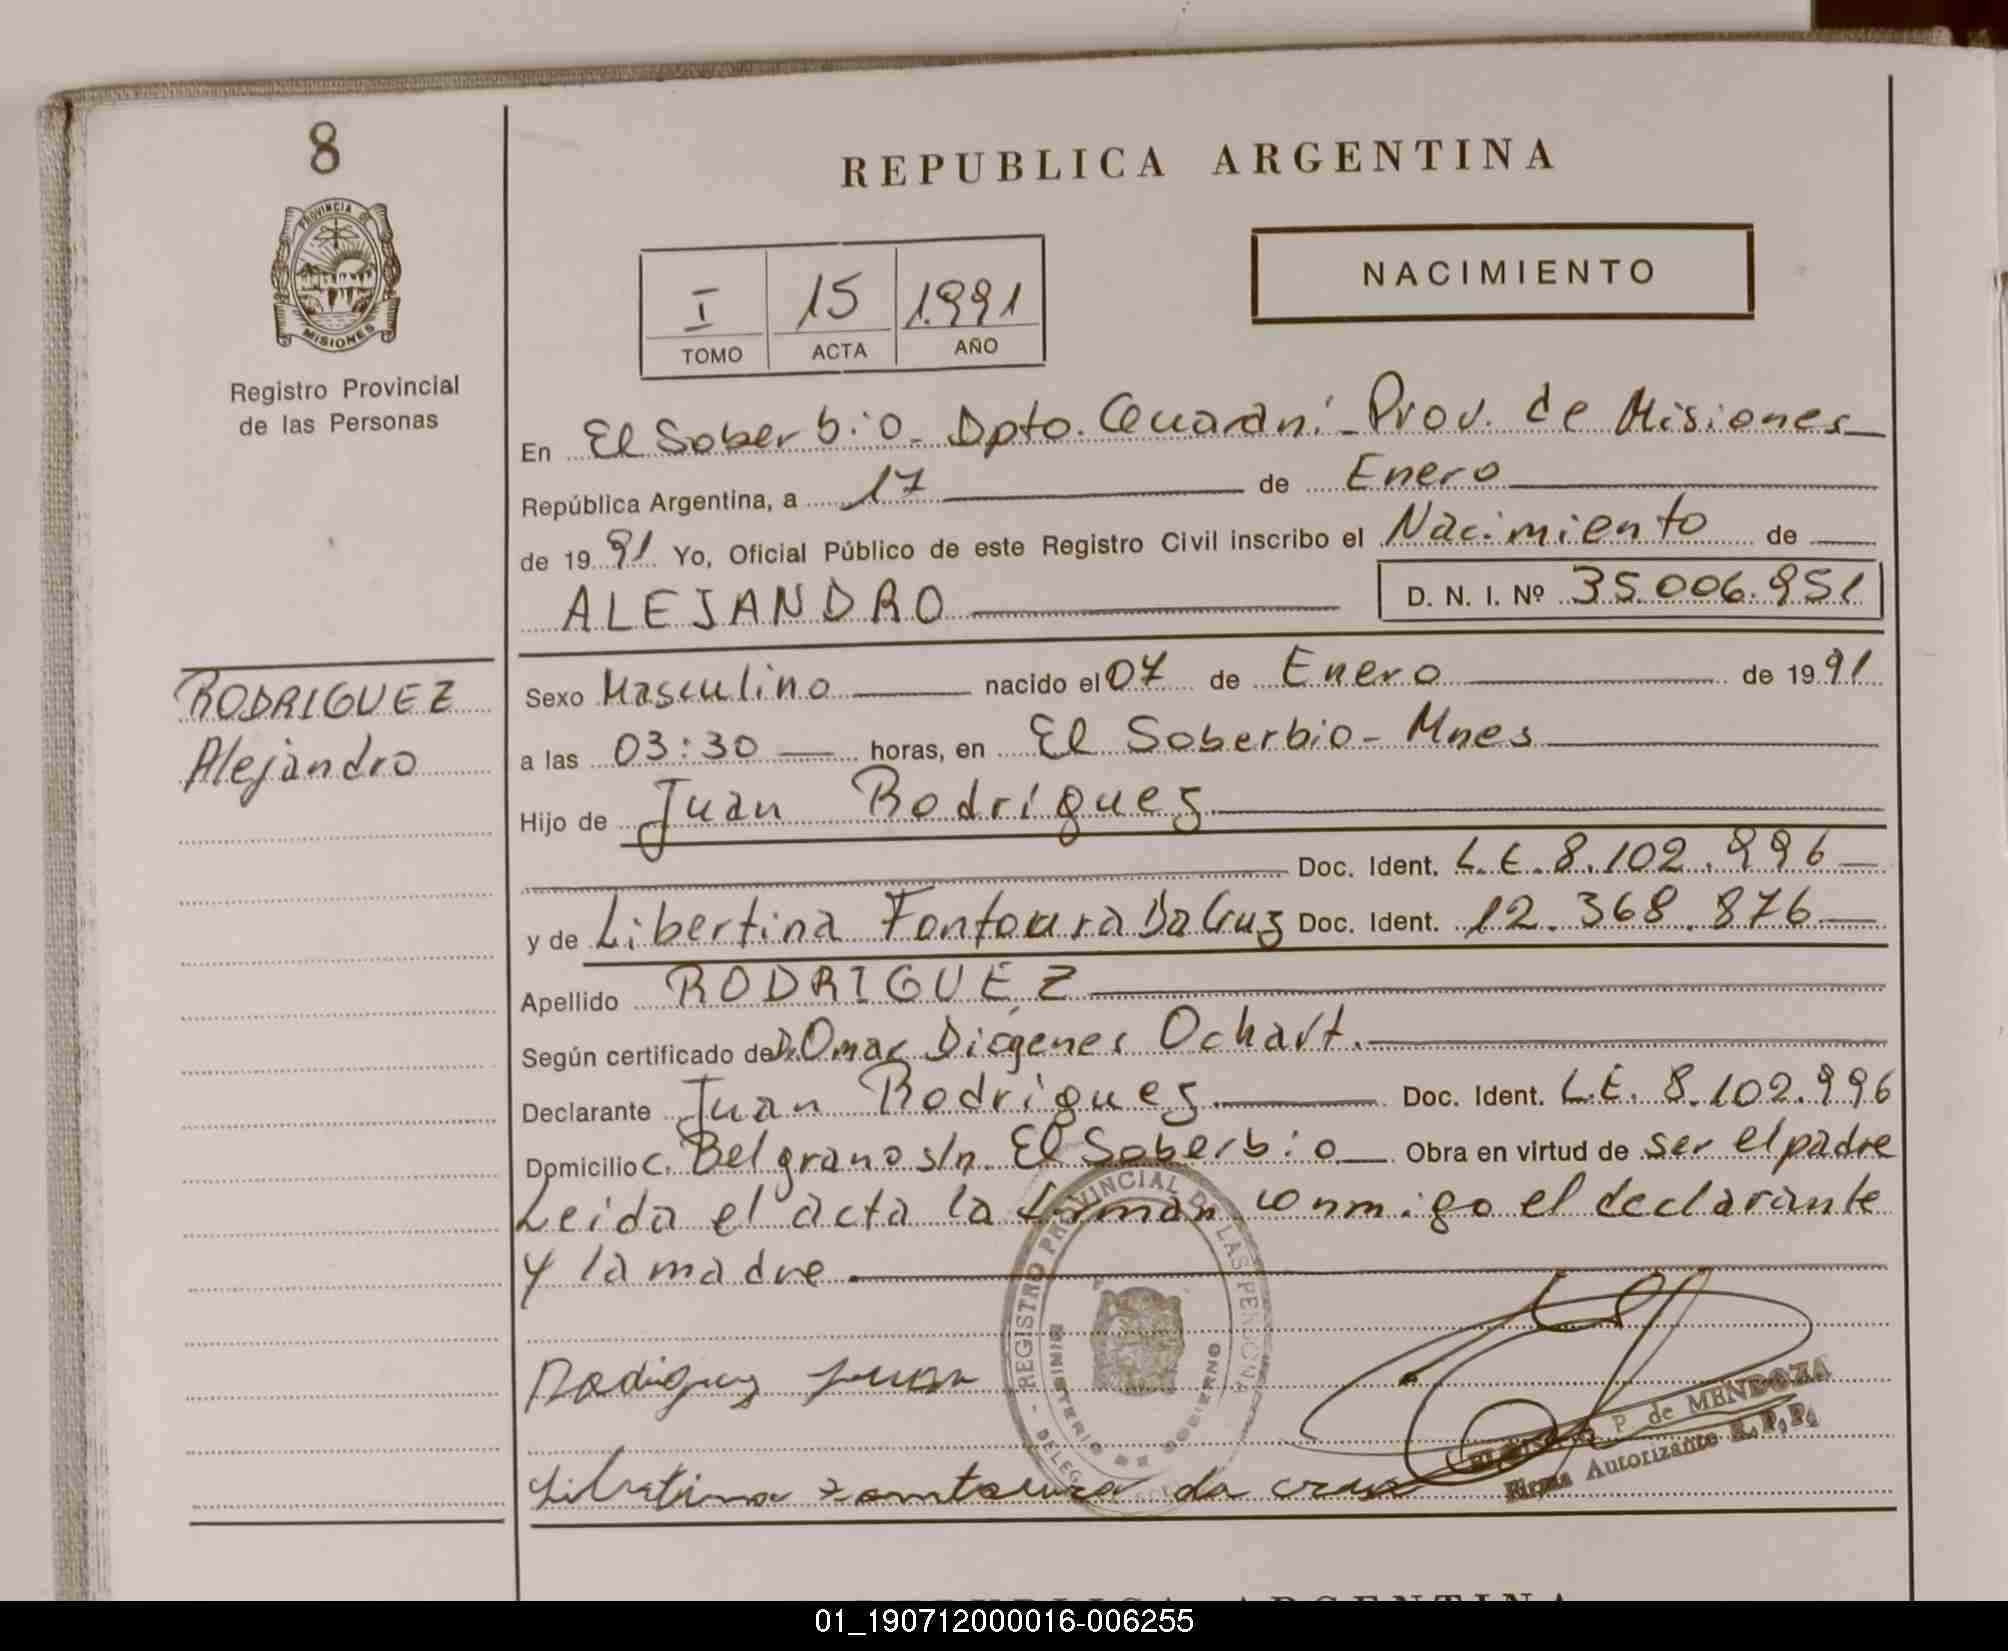 8
PROVINCIA DE
MISIONES
Registro Provincial
de las Personas
REPUBLICA ARGENTINA
I 15 1.991
TOMO ACTA AÑO
NACIMIENTO
En El Soberbio - Dpto. Guaraní - Prov. de Misiones
República Argentina, a 17 de Enero
de 19 91 Yo, Oficial Público de este Registro Civil inscribo el Nacimiento de
ALEJANDRO D. N. I. Nº 35.006.951
RODRIGUEZ
Alejandro
Sexo Masculino nacido el 07 de Enero de 19 91
a las 03:30 horas, en El Soberbio - Mnes
Hijo de Juan Rodríguez
Doc. Ident. L.E. 8.102.996
y de Libertina Fontoura Da Cruz Doc. Ident. 12.368.876
Apellido RODRIGUEZ
Según certificado de Dr. Omar Diógenes Ochart.
Declarante Juan Rodríguez Doc. Ident. L.E. 8.102.996
Domicilio C. Belgrano s/n. El Soberbio Obra en virtud de ser el padre
Leida el acta la firman conmigo el declarante
y la madre
REGISTRO PROVINCIAL DE LAS PERSONAS
MINISTERIO DE GOBIERNO
Rodriguez Juan
P. de MENDOZA
Firma Autorizante R.P.P.
Libertina Fontoura da cruz
REPUBLICA ARGENTINA
01_190712000016-006255